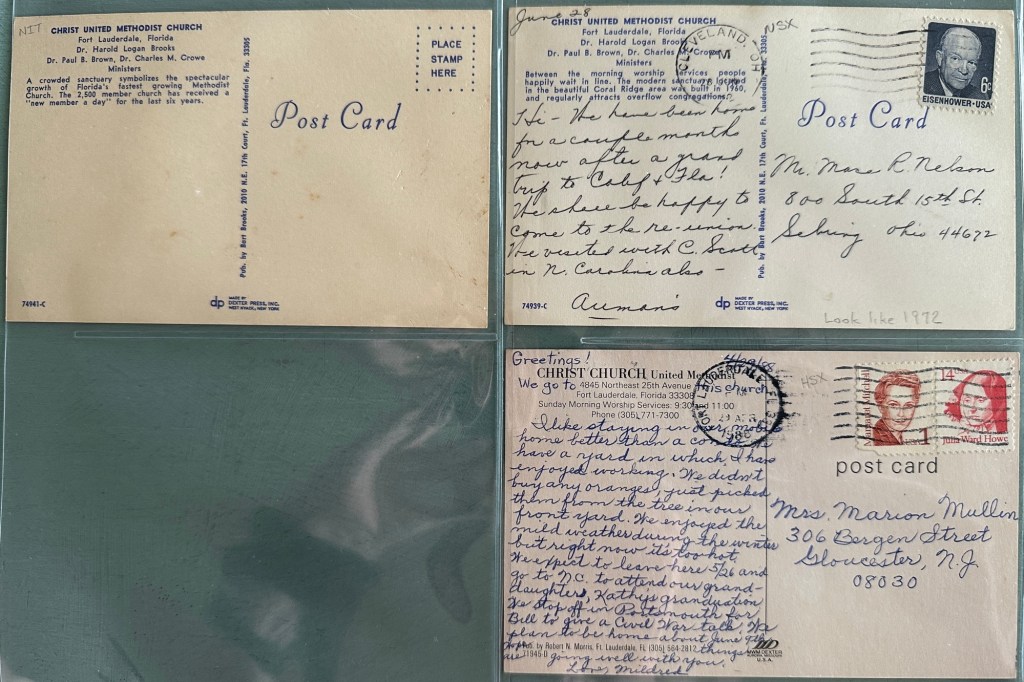 NIT
CHRIST UNITED METHODIST CHURCH
Fort Lauderdale, Florida
Dr. Harold Logan Brooks
Dr. Paul B. Brown, Dr. Charles M. Crowe
Ministers
A crowded sanctuary symbolizes the spectacular
growth of Florida's fastest growing Methodist
Church. The 2,500 member church has received a
"new member a day" for the last six years.
PLACE
STAMP
HERE
Post Card
Pub. by Bart Brooks, 2010 N.E. 17th Court, Ft. Lauderdale, Fla. 33305
74941-C
dp
MADE BY
DEXTER PRESS, INC.
WEST NYACK, NEW YORK
June 28
CHRIST UNITED METHODIST CHURCH
Fort Lauderdale, Florida
Dr. Harold Logan Brooks
Dr. Paul B. Brown, Dr. Charles M. Crowe
Ministers
Between the morning worship services people
happily wait in line. The modern sanctuary located
in the beautiful Coral Ridge area was built in 1960,
and regularly attracts overflow congregations.
CLEVELAND, OH
PM
USX
6c
EISENHOWER·USA
Post Card
Hi - We have been home
for a couple months
now after a grand
trip to Calif & Fla!
We shall be happy to
come to the re-union.
We visited with C. Scott
in N. Carolina also -
Auman's
Pub. by Bart Brooks, 2010 N.E. 17th Court, Ft. Lauderdale, Fla. 33305
Mr. R. Nelson
800 South 15th St.
Sebring Ohio 44672
74939-C
dp
MADE BY
DEXTER PRESS, INC.
WEST NYACK, NEW YORK
Look like 1972
Greetings!
CHRIST CHURCH, United Methodist
We go to 4845 Northeast 25th Avenue this church
Fort Lauderdale, Florida 33308
Sunday Morning Worship Services: 9:30 and 11:00
Phone (305) 771-7300
FORT LAUDERDALE, FL
PM
29 APR
1988
HSX
1
14c
Julia Ward Howe
post card
I like staying in our mobile
home better than a We
have a yard in which I have
enjoyed working. We didn't
buy any oranges, just picked
them from the tree in our
front yard. We enjoyed the
mild weather during the winter
but right now it's too hot.
We expect to leave here 5/26 and
go to N.C. to attend our grand-
daughter, Kathy's graduation
We stop off in Portsmouth for
Bill to give a Civil War talk. We
plan to be home about June 9th.
Hope things
are going well with you.
Love, Mildred
Pub. by Robert N. Morris, Ft. Lauderdale, FL (305) 564-2812
11945-D
MWM DEXTER
U.S.A.
Mrs. Marion Mullin
306 Bergen Street
Gloucester, N.J.
08030